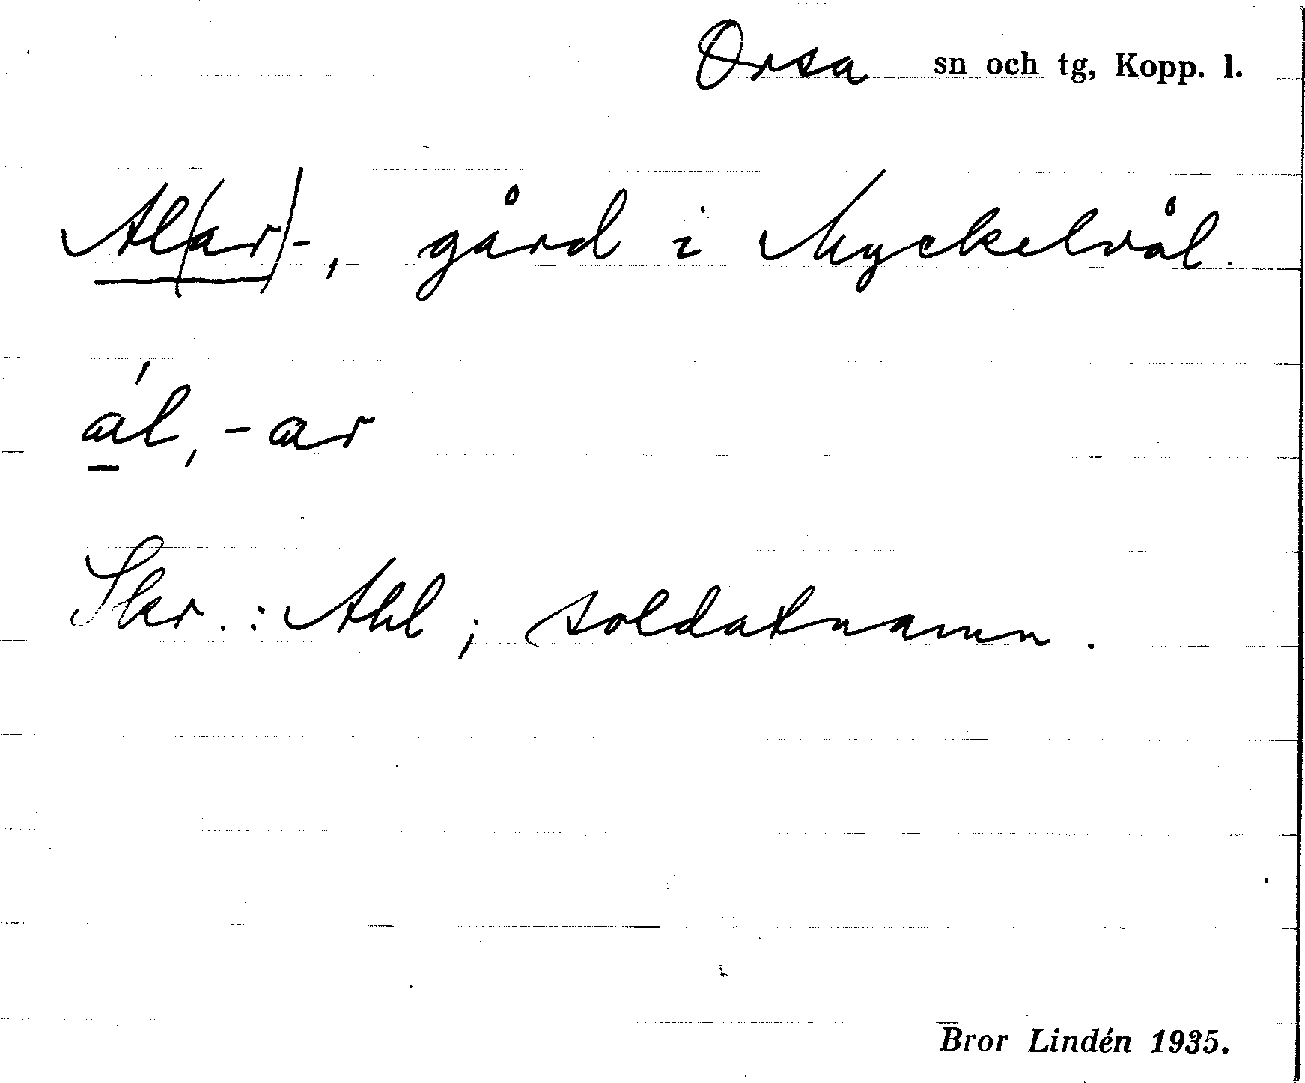 Orsa sn och tg, Kopp. l.
Al(ar)-, gård i Myckelvål.
á̱l, -ar
Skr.: Ahl; soldatnamn.
Bror Lindén 1935.